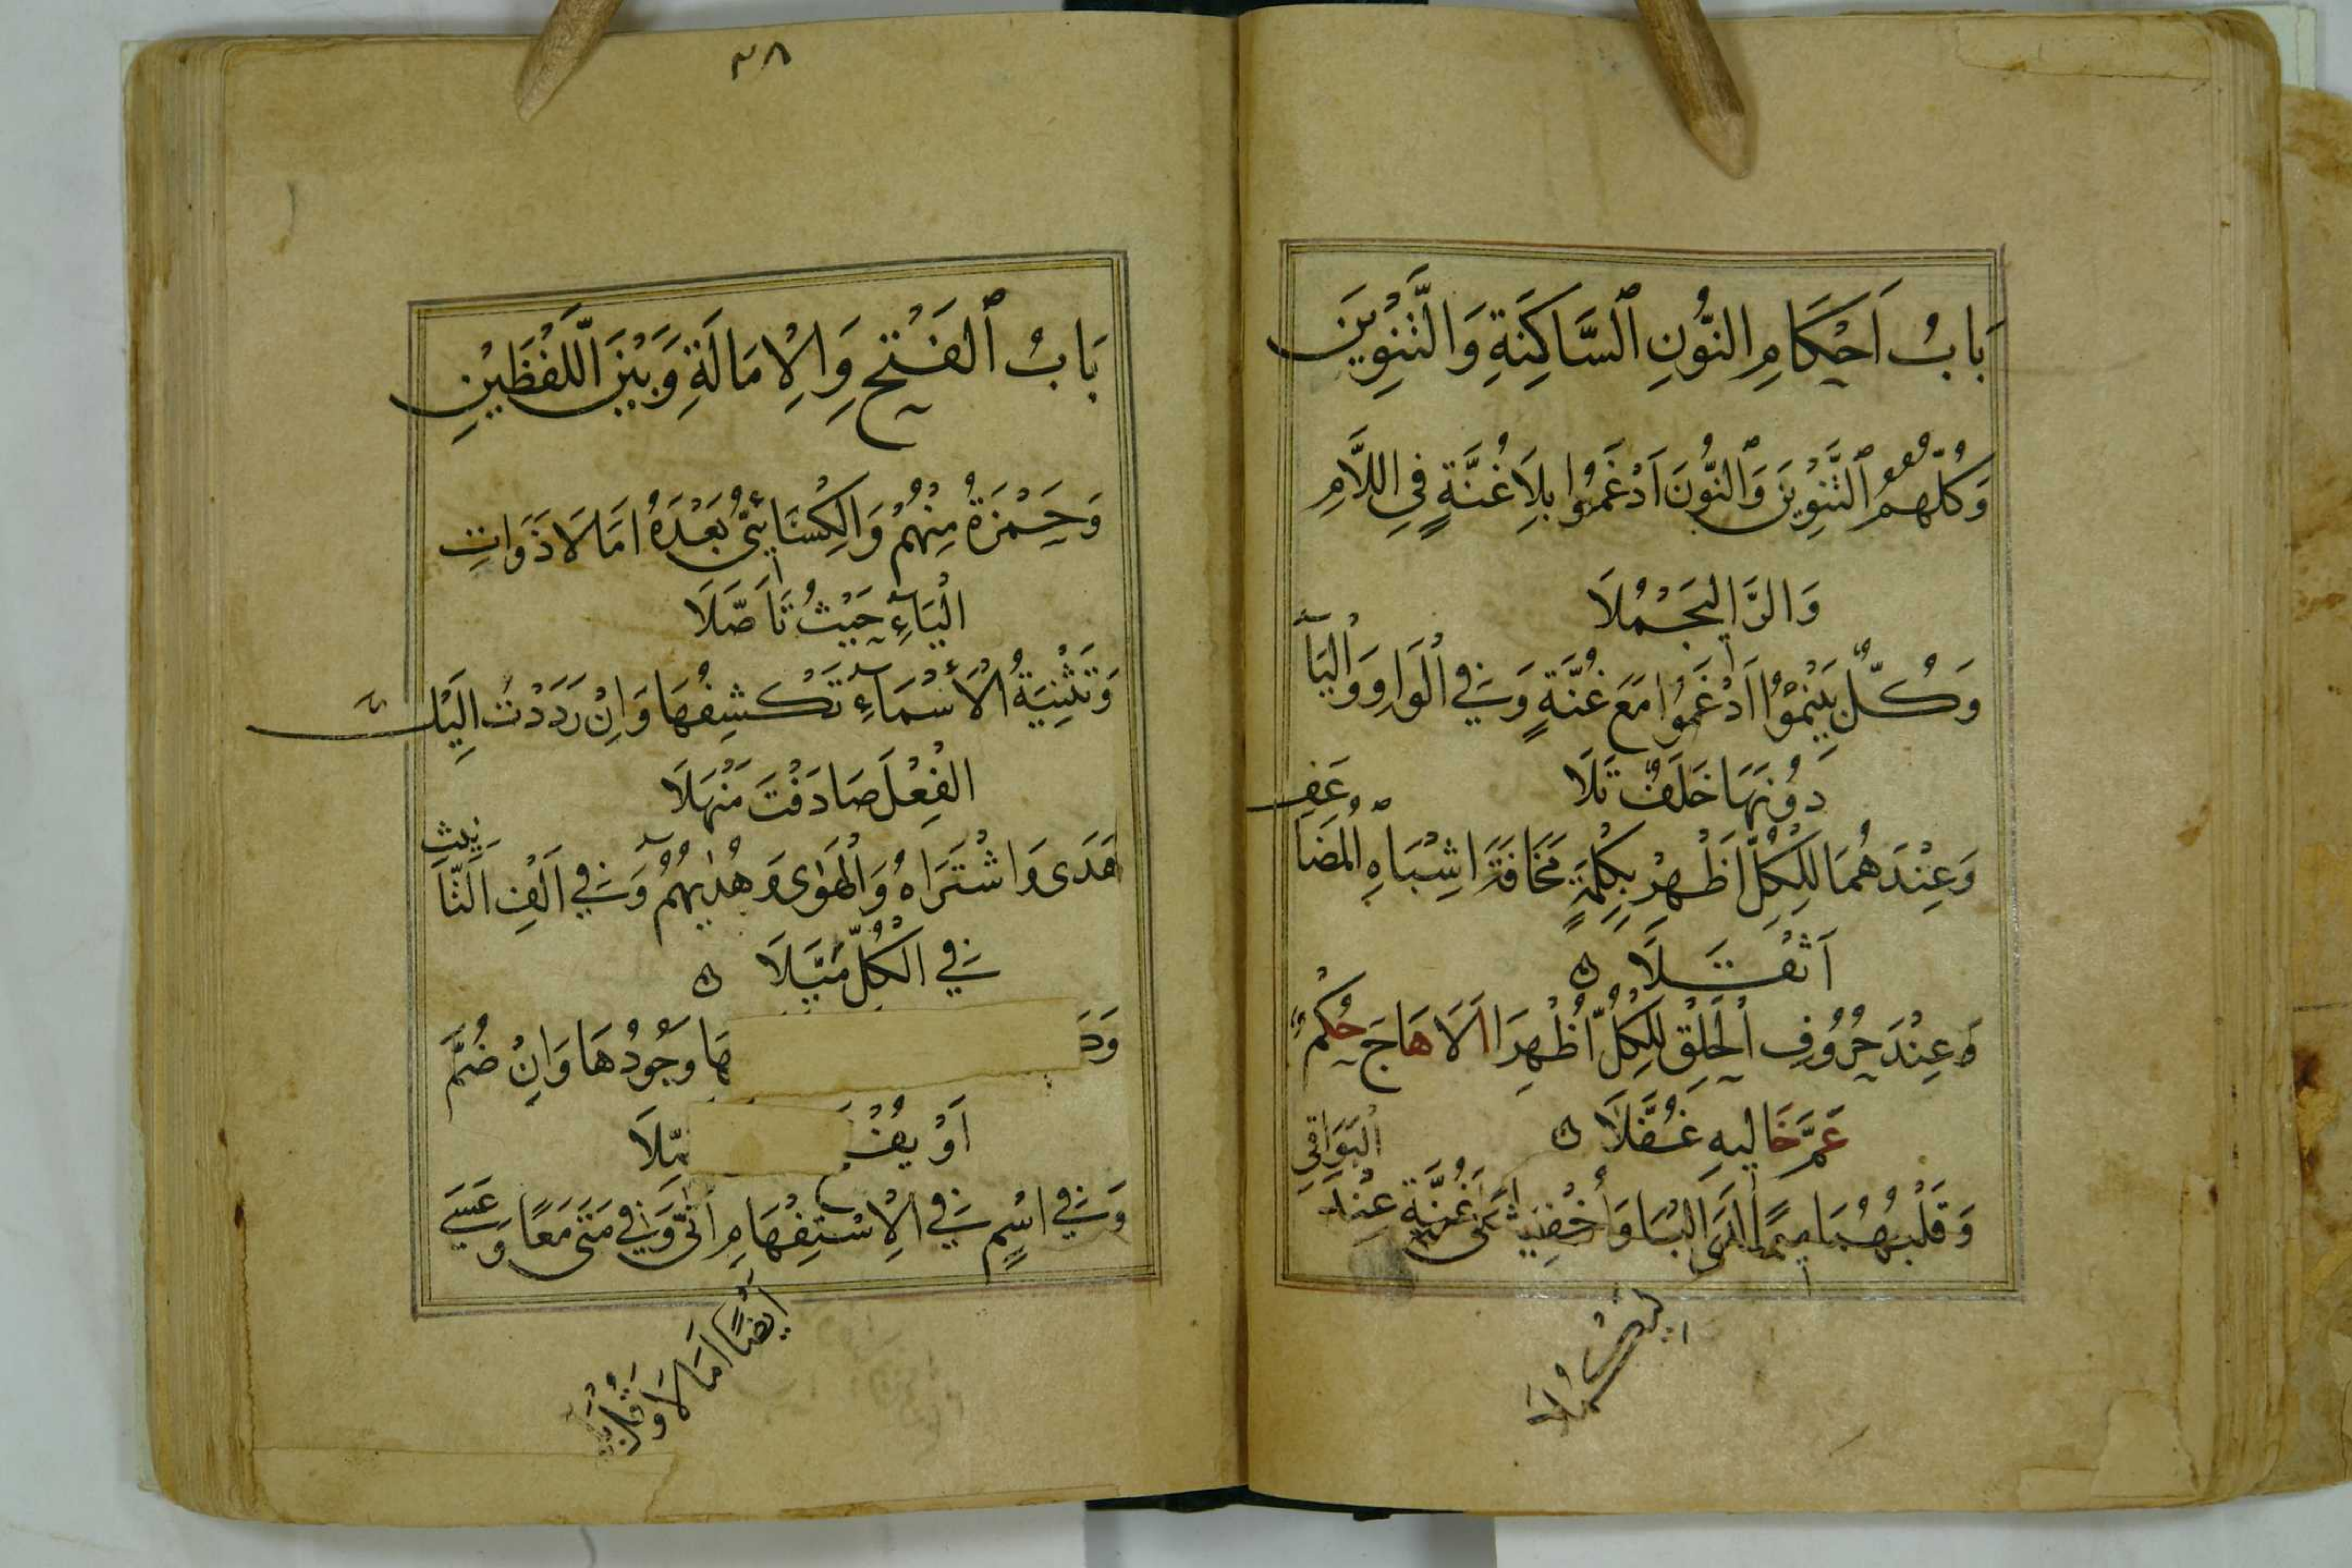 بَابُ اَحْكَامِ النُّونِ ٱلسَّاكِنَةِ وَالتَّنْوِينِ
وَكُلُّهُمُ ٱلتَّنْوِينَ وَٱلنُّونَ اَدْغَمُوا بِلَا غُنَّةٍ فِي اللَّامِ
وَالرَّا لِيَجْمُلَا
وَكُلٌّ بِيَنْمُوْا اَدْغَمُوا مَعَ غُنَّةٍ وَفِي الْوَاوِ وَالْيَآ
دُونَهَا خَلَفٌ تَلَا
وَعِنْدَهُمَا لِلْكُلِّ اَظْهِرْ بِكِلْمَةٍ مَخَافَةَ اشْبَاهِ الْمُضَا
عَفِ
اَثْقَلَا
وَعِنْدَ حُرُوفِ الْحَلْقِ لِلْكُلِّ اُظْهِرَا اَلَا هَاجَ حُكْمٌ
عَمَّ خَالِيهِ غُفَّلَا
وَقَلْبُهُمَا مِيمًا لَدَى الْبَا وَأُخْفِيَا عَلَى غُنَّةٍ عِنْدَ
الْبَوَاقِي
لِيَكْمُلَا
٣٨
بَابُ ٱلْفَتْحِ وَالْاِمَالَةِ وَبَيْنَ اللَّفْظَيْنِ
وَحَمْزَةُ مِنْهُمْ وَالْكِسَائِيُّ بَعْدَهُ اَمَالَا ذَوَاتِ
الْيَآءِ حَيْثُ تَاَصَّلَا
وَتَثْنِيَةُ الْأَسْمَآءِ تَكْشِفُهَا وَاِنْ رَدَدْتَ اِلَيْكَ
الْفِعْلَ صَادَفْتَ مَنْهَلَا
هَدَى وَاشْتَرَاهُ وَالْهَوٰى وَهُدٰيهُمُ وَفِي اَلْفِ التَّأ
نِيثِ
فِي الْكُلِّ مَيَّلَا
هَا وَجُودُهَا وَاِنْ ضُمَّ
اَوْ يُفْ
وَفِي اسْمٍ فِي الْاِسْتِفْهَامِ اَنّٰى وَفِي مَتٰى مَعًا وَعَسٰى
اَيْضًا اَمَالَا وَقُلْ بَلٰى